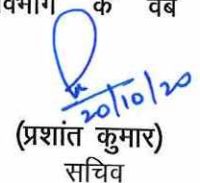 विभाग के वेब
20/10/20
(प्रशांत कुमार)
सचिव